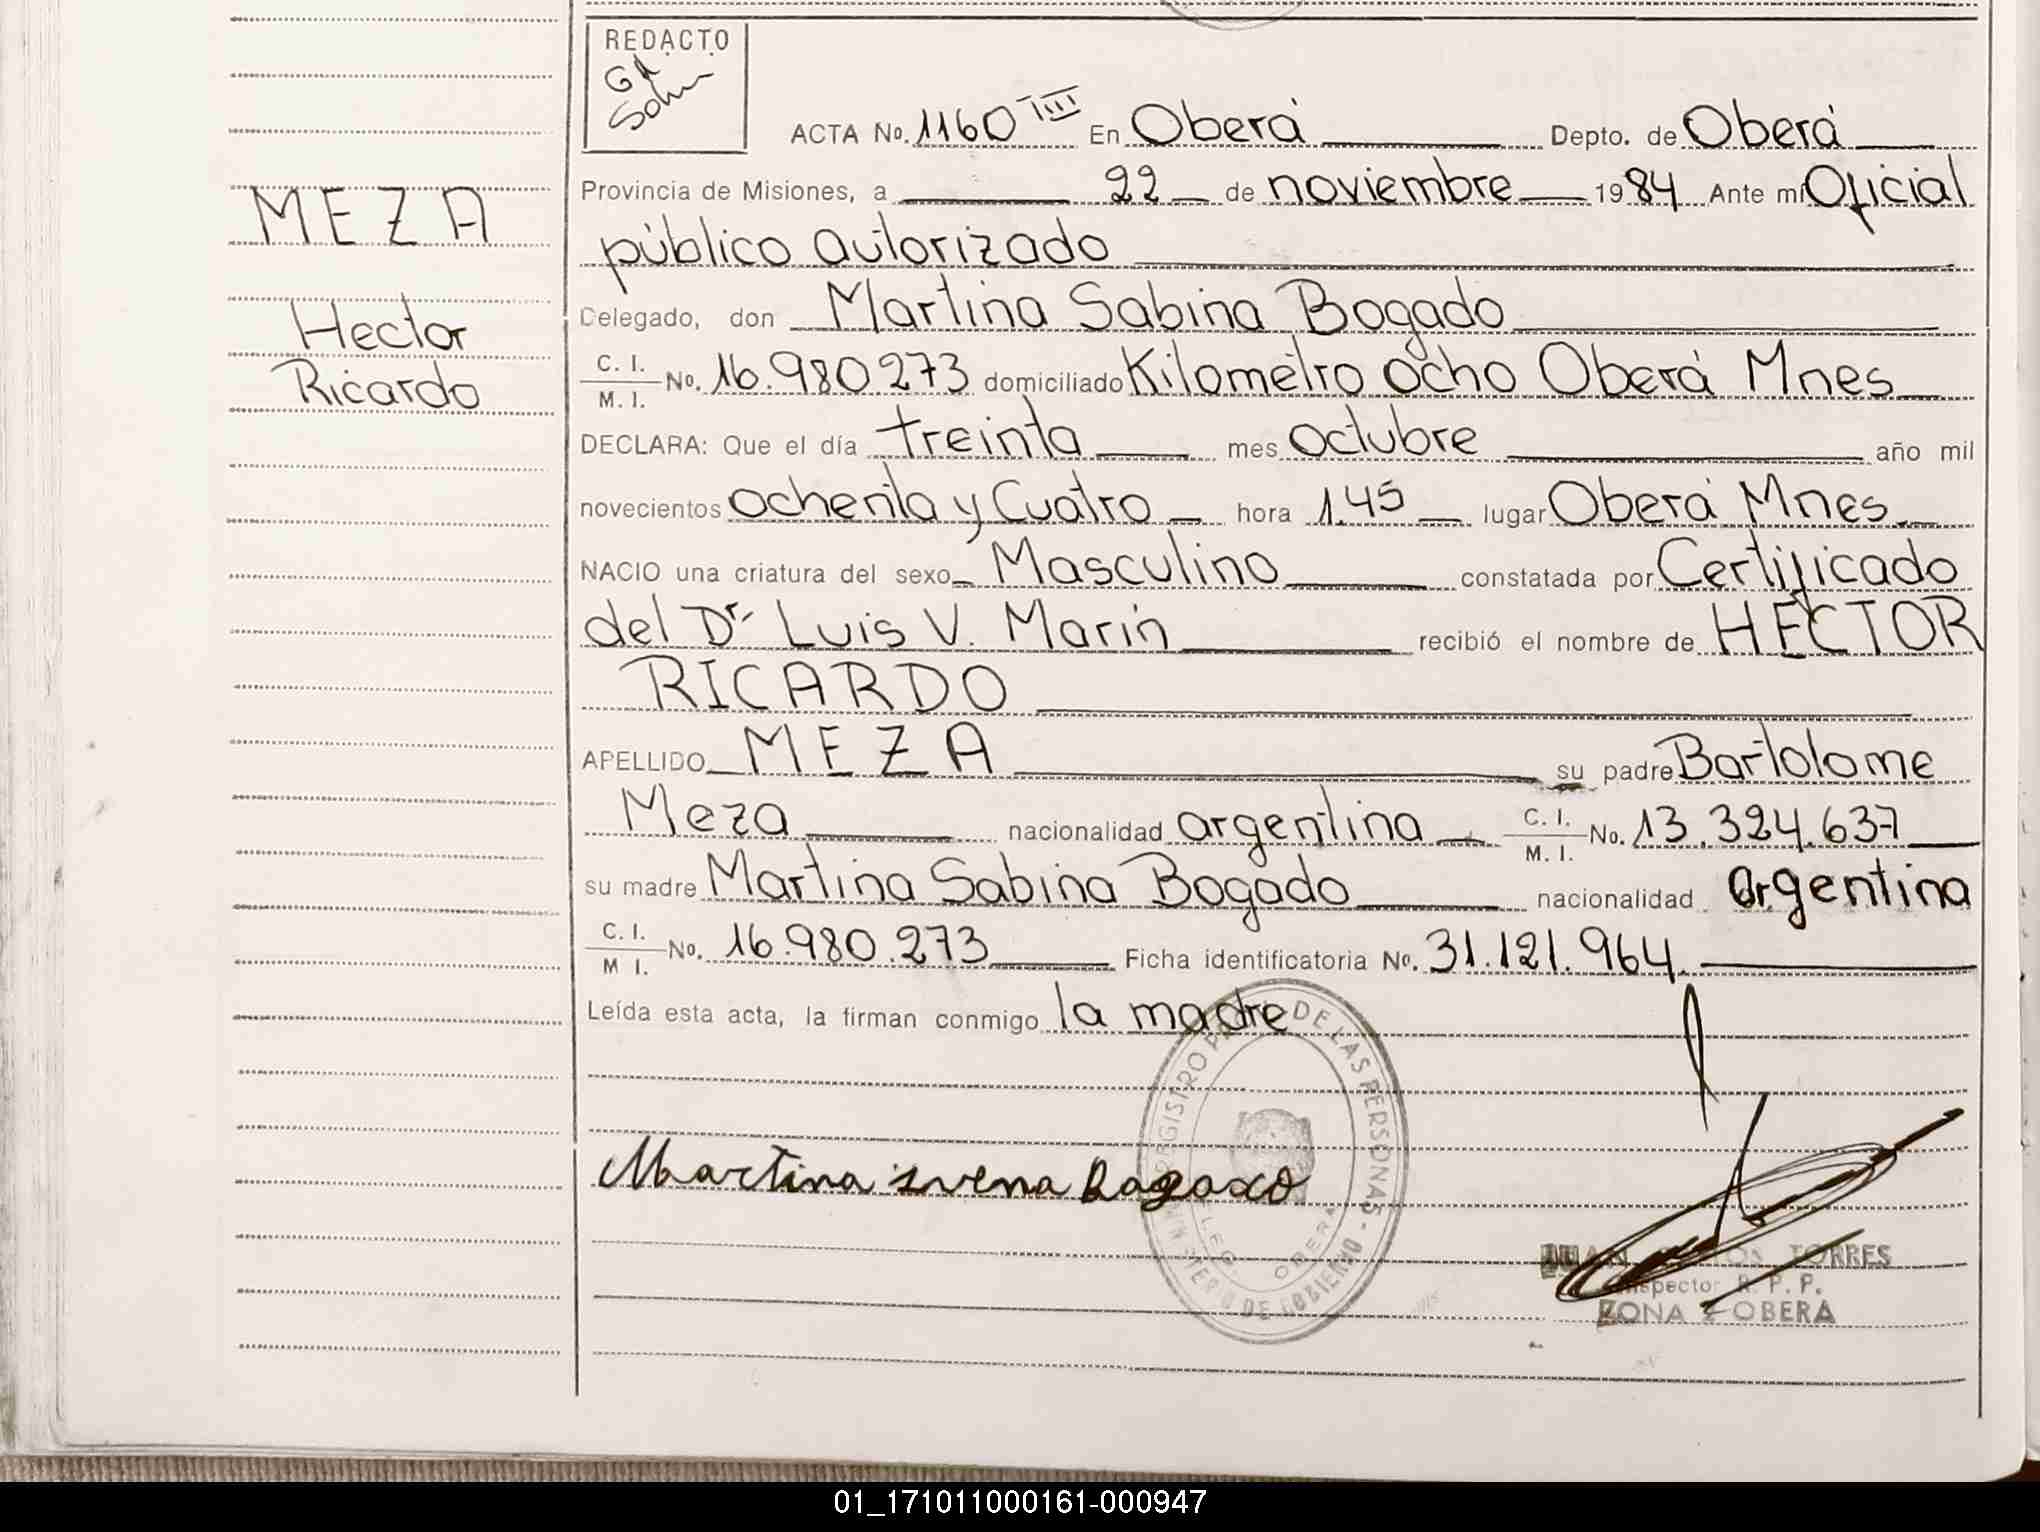 REDACTO
ACTA No. 1160 TIII En Oberá Depto. de Oberá
Provincia de Misiones, a 22 de noviembre 1984 Ante mí Oficial
público autorizado
Delegado, don Martina Sabina Bogado
C. I.
M. I. No. 16.980.273 domiciliado Kilometro ocho Oberá Mnes
DECLARA: Que el día treinta mes Octubre año mil
novecientos ochenta y Cuatro hora 1.45 lugar Oberá Mnes.
NACIO una criatura del sexo Masculino constatada por Certificado
del Dr Luis V. Marin recibió el nombre de HECTOR
RICARDO
APELLIDO MEZA su padre Bartolome
Meza nacionalidad argentina C. I. M. I. No. 13.324.637
su madre Martina Sabina Bogado nacionalidad Argentina
C. I.
M I. No. 16.980.273 Ficha identificatoria No. 31.121.964.
Leída esta acta, la firman conmigo la madre
MEZA
Hector
Ricardo
Martina
DE LAS PERSONAS
OBERA
DE GOBIERNO
TORRES
Inspector R. P. P.
ZONA 2 OBERA
01_171011000161-000947